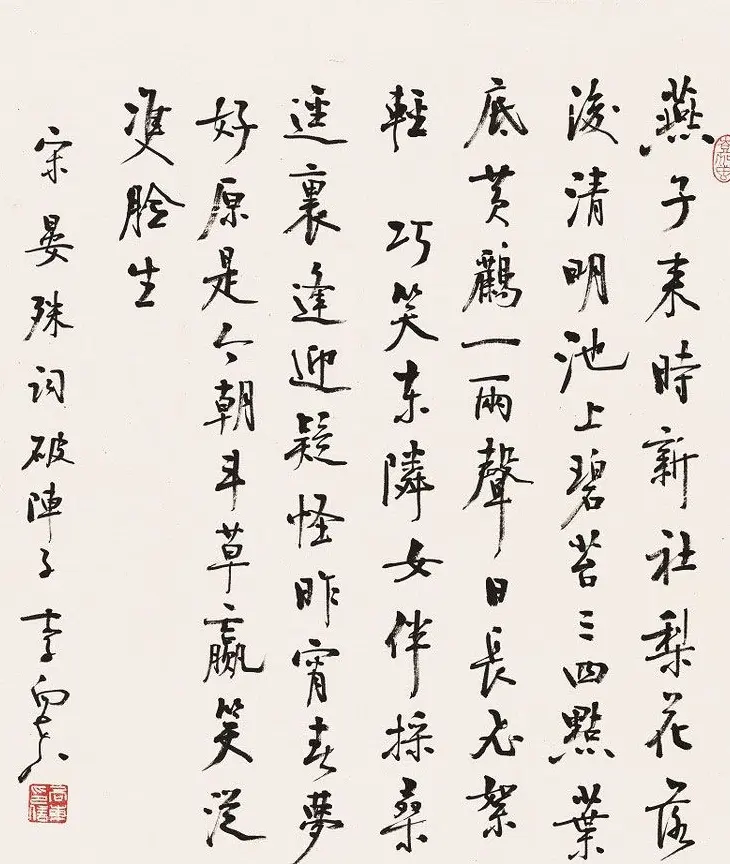 燕子来時新社梨花落
後清明池上碧苔三四點葉
底黄鸝一兩聲日長飛絮
輕 巧笑東隣女伴採桑
逕裏逢迎疑怪昨宵春夢
好原是今朝斗草贏笑從
雙臉生
宋晏殊詞破陣子 李向東